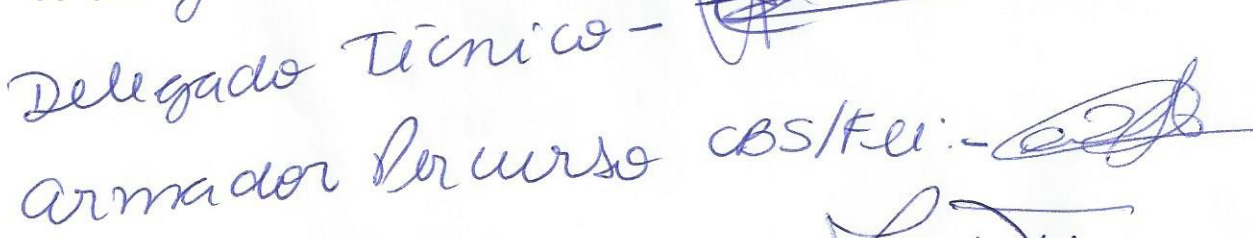 Delegado Técnico -
Armador Percurso CBS/FEI:-